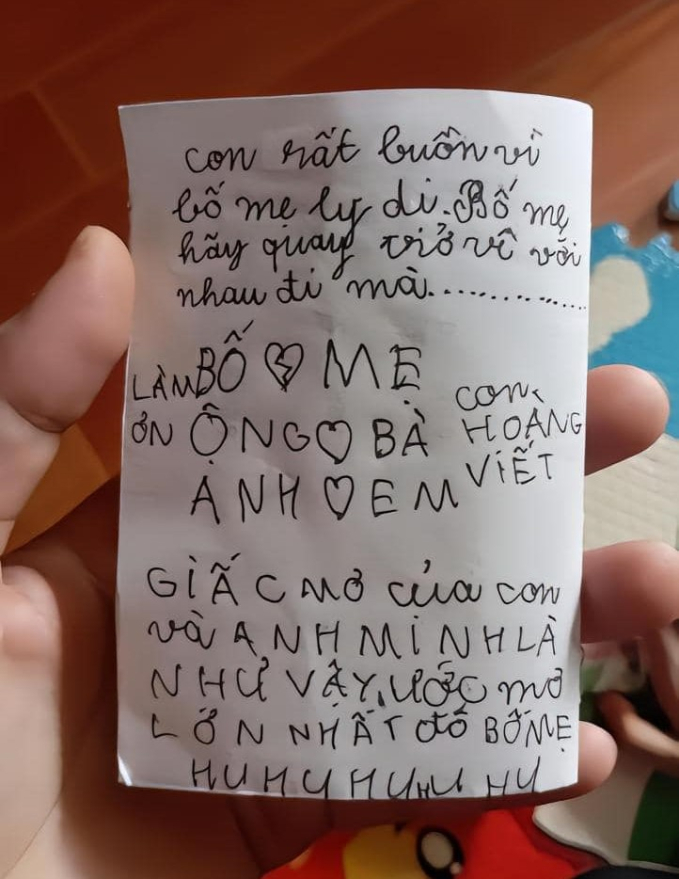 con rất buồn vì
bố mẹ ly di. Bố mẹ
hãy quay trở về với
nhau đi mà..............
LÀM BỐ 💔 MẸ
ƠN ÔNG ♡ BÀ
ANH ♡ EM
con
HOÀNG
VIẾT
GIẤC MƠ của con
và ANH MINH LÀ
NHƯ VẬY, ƯỚC mơ
LỚN NHẤT đó BỐ MẸ
HU HU HU HU HU